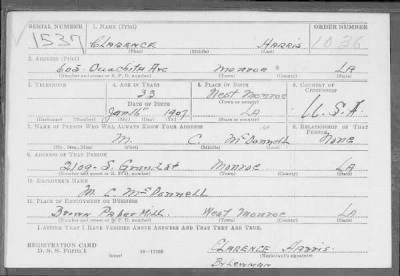 SERIAL NUMBER 1. NAME (Print) ORDER NUMBER
1537 CLARENCE HARRIS 1036
(First) (Middle) (Last)
2. ADDRESS (Print)
605 Ouachita Ave Monroe LA
(Number and street or R. F. D. number) (Town) (County) (State)
3. TELEPHONE 4. AGE IN YEARS 5. PLACE OF BIRTH 6. COUNTRY OF CITIZENSHIP
33 West Monroe
DATE OF BIRTH (Town or county)
Jan 15 1907 LA U.S.A.
(Exchange) (Number) (Mo.) (Day) (Yr.) (State or country)
7. NAME OF PERSON WHO WILL ALWAYS KNOW YOUR ADDRESS 8. RELATIONSHIP OF THAT PERSON
M. C. McDonnell None
(Mr., Mrs., Miss) (First) (Middle) (Last)
9. ADDRESS OF THAT PERSON
S. Grand St Monroe LA
(Number and street or R. F. D. number) (Town) (County) (State)
10. EMPLOYER'S NAME
M. C. McDonnell
11. PLACE OF EMPLOYMENT OR BUSINESS
Brown Paper Mill West Monroe LA
(Number and street or R. F. D. number) (Town) (County) (State)
I AFFIRM THAT I HAVE VERIFIED ABOVE ANSWERS AND THAT THEY ARE TRUE.
REGISTRATION CARD
D. S. S. FORM 1 (over) 16—17105 Clarence Harris
(Registrant's signature)